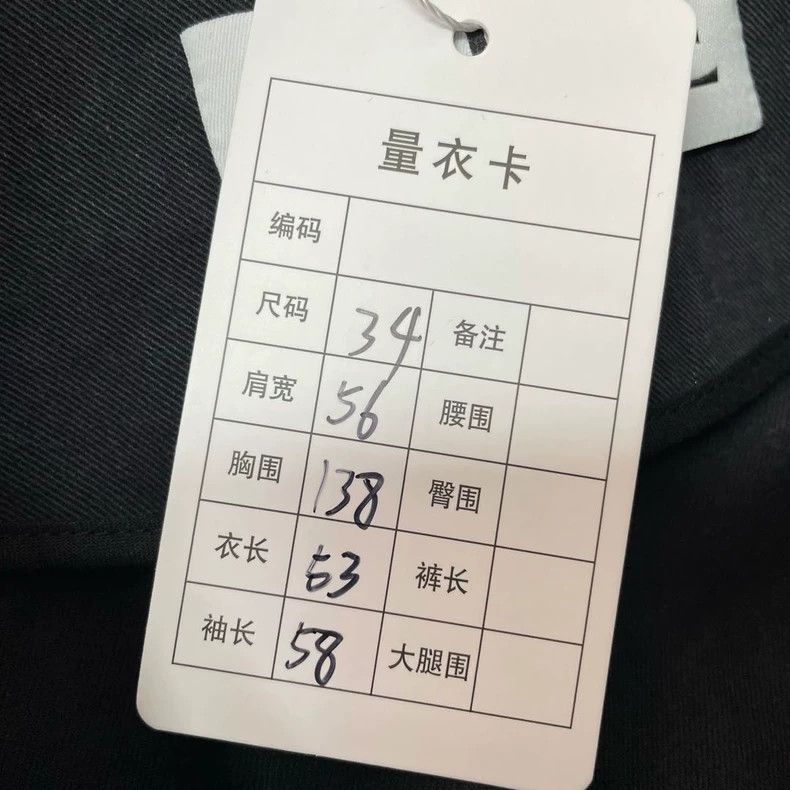 量衣卡
编码
尺码 34 备注
肩宽 56 腰围
胸围 138 臀围
衣长 53 裤长
袖长 58 大腿围